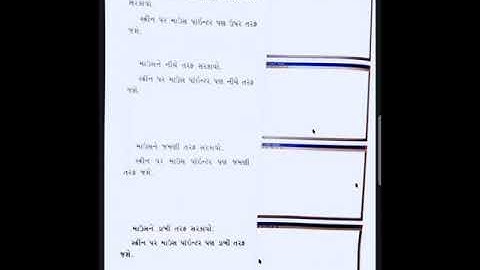 સરકાવો
સ્ક્રીન પર માઉસ પોઇન્ટર પણ ઉપર તરફ
જશે.
માઉસને નીચે તરફ સરકાવો.
સ્ક્રીન પર માઉસ પોઇન્ટર પણ નીચે તરફ
જશે.
માઉસને જમણી તરફ સરકાવો.
સ્ક્રીન પર માઉસ પોઇન્ટર પણ જમણી
તરફ જશે.
માઉસને ડાબી તરફ સરકાવો.
સ્ક્રીન પર માઉસ પોઇન્ટર પણ ડાબી તરફ
જશે.